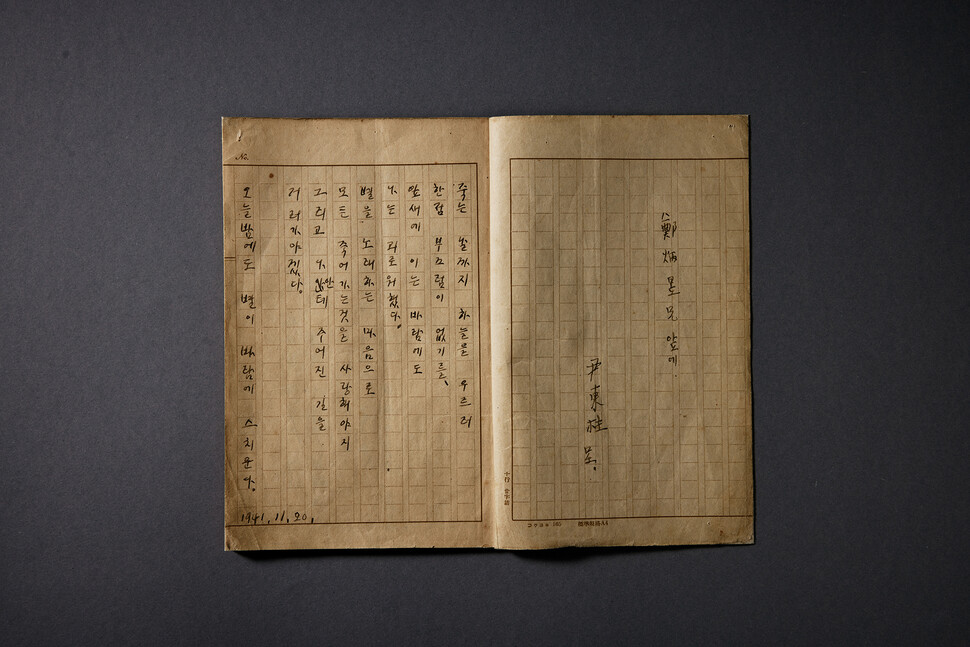 鄭炳昱兄 앞에.
尹東柱 呈.
죽는 날까지 하늘을 우르러
한점 부끄럼이 없기를、
잎새에 이는 바람에도
나는 괴로워했다。
별을 노래하는 마음으로
모든 죽어가는것을 사랑해야지
그리고 나안테 주어진 길을
거러가야겠다。
오늘밤에도 별이 바람에 스치운다。
1941, 11, 20,
No.
標準規格A4